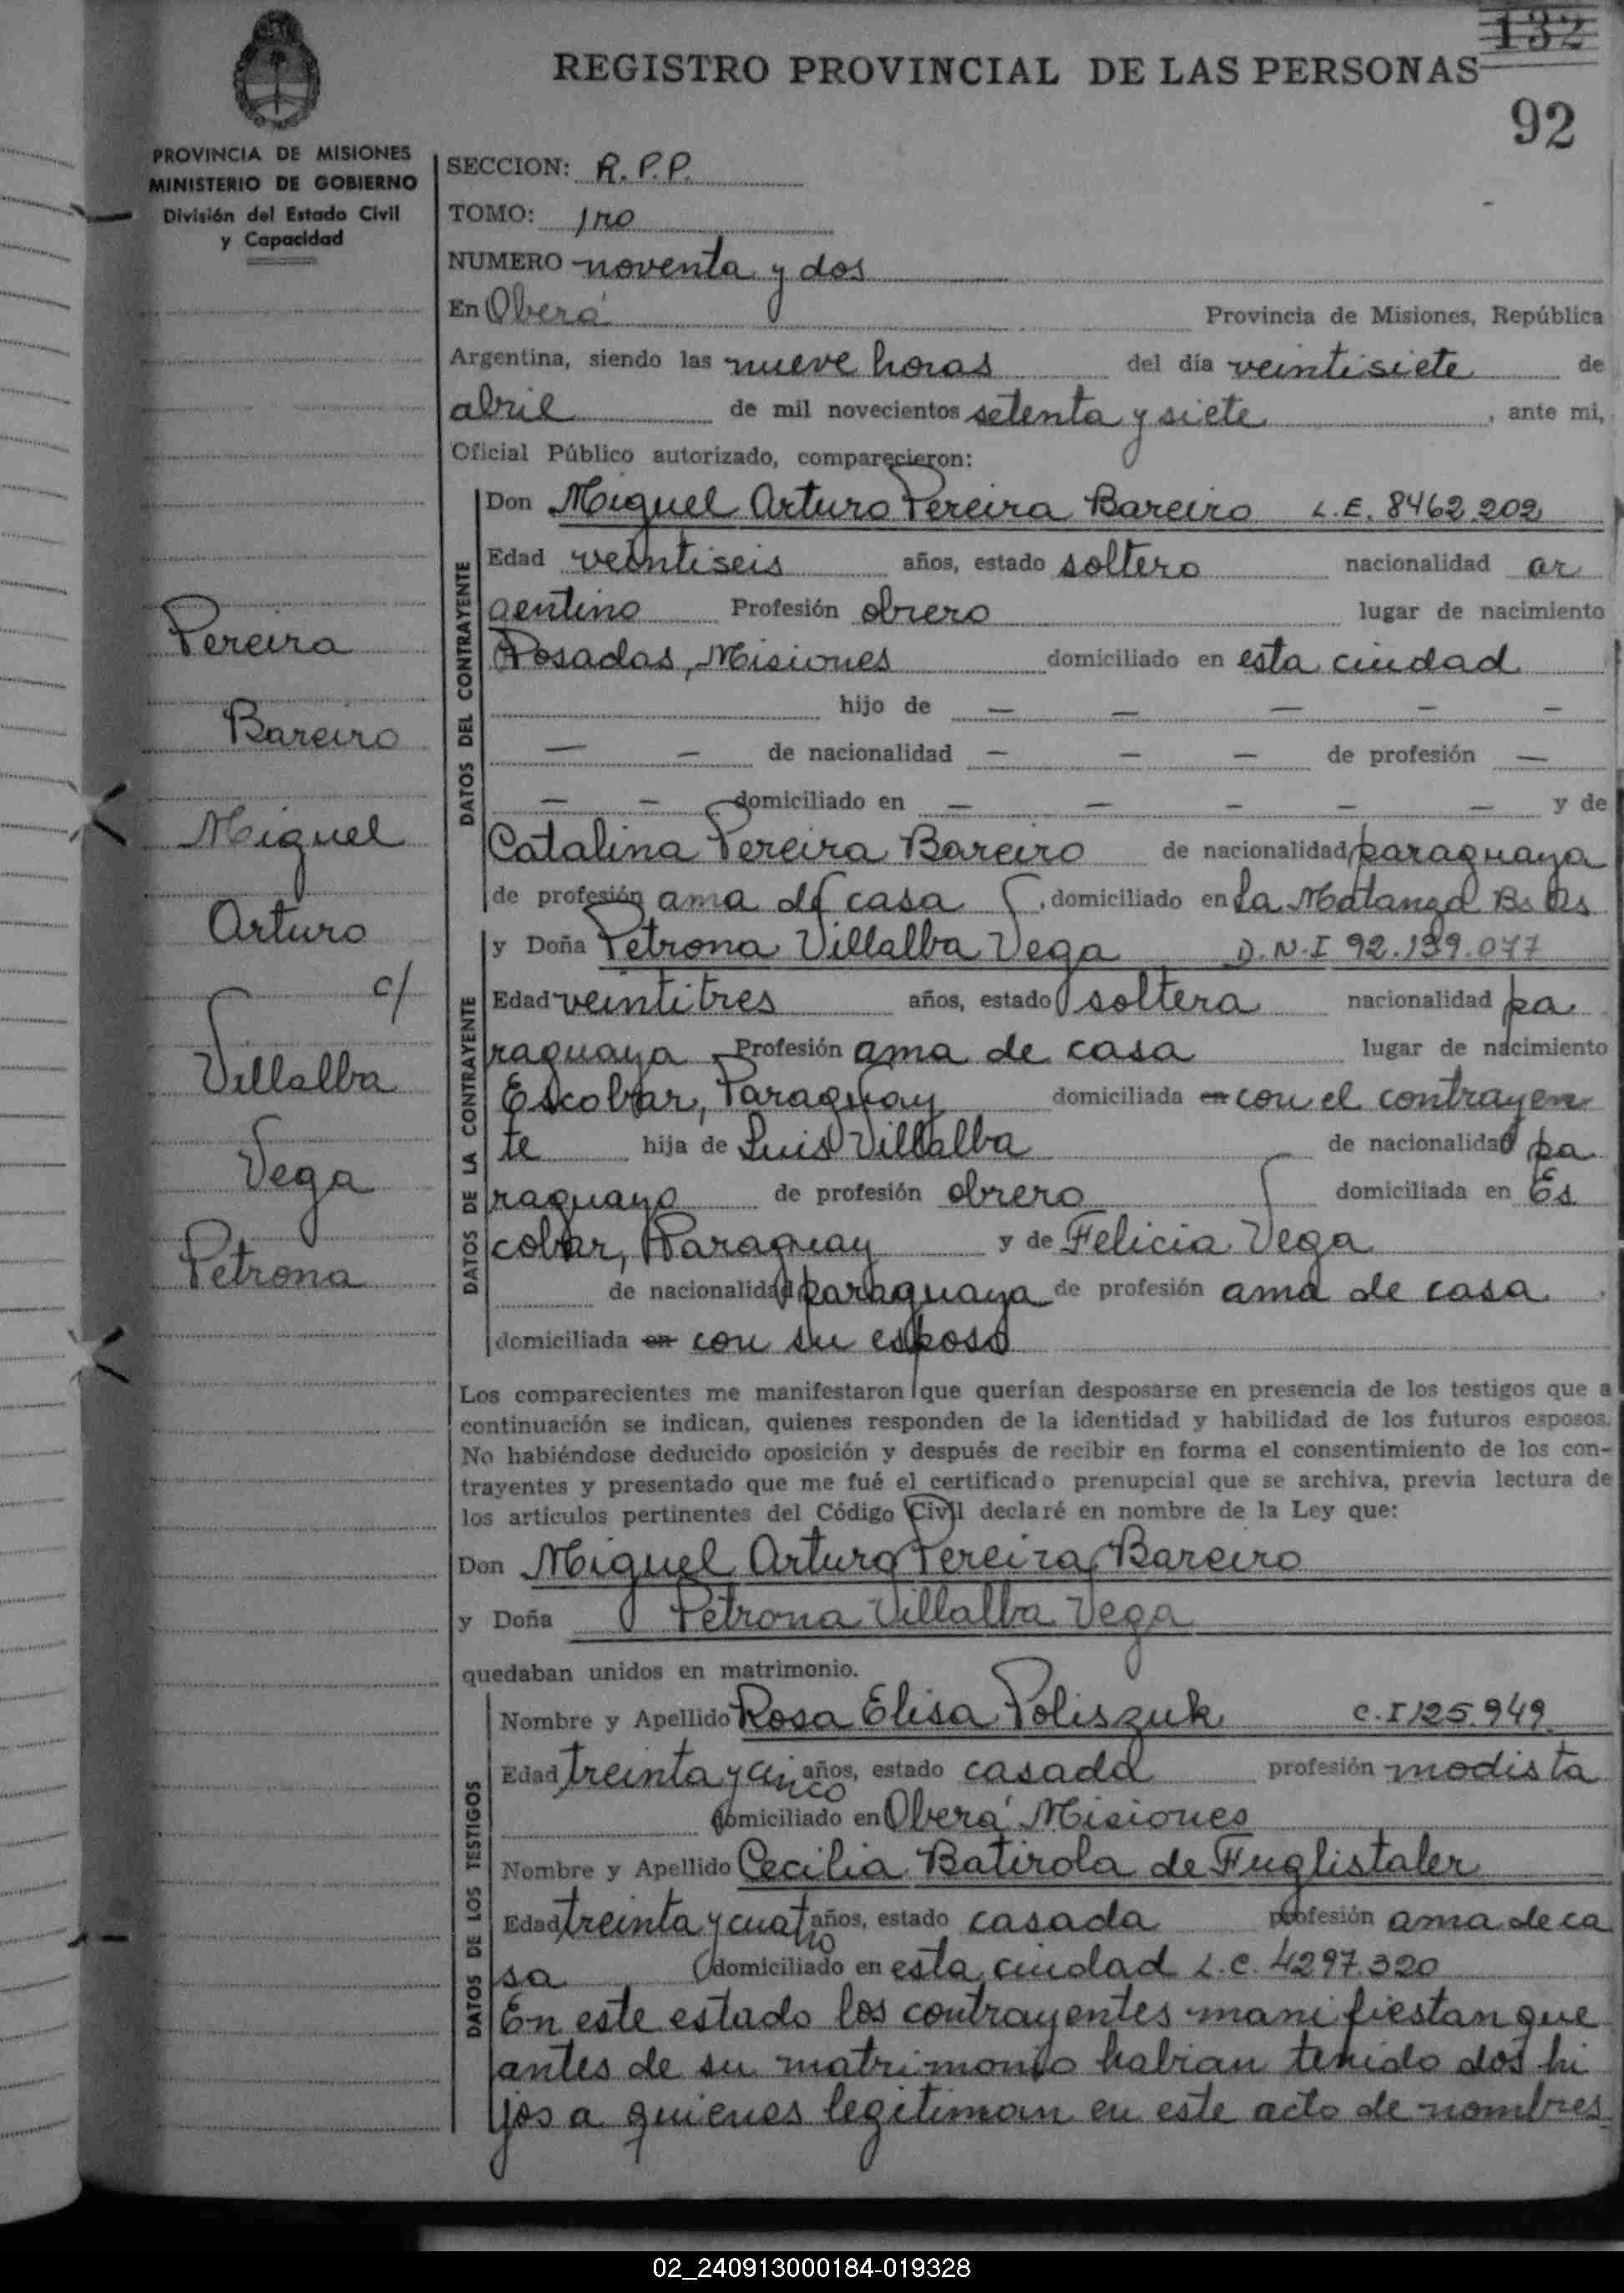 132
REGISTRO PROVINCIAL DE LAS PERSONAS
92
PROVINCIA DE MISIONES
MINISTERIO DE GOBIERNO
División del Estado Civil
y Capacidad
SECCION: R.P.P.
TOMO: 1ro
NUMERO noventa y dos
En Oberá Provincia de Misiones, República
Argentina, siendo las nueve horas del día veintisiete de
abril de mil novecientos setenta y siete, ante mi,
Oficial Público autorizado, comparecieron:
DATOS DEL CONTRAYENTE
Don Miguel Arturo Pereira Bareiro L.E. 8462.202
Edad veintiseis años, estado soltero nacionalidad ar
gentino Profesión obrero lugar de nacimiento
Posadas, Misiones domiciliado en esta ciudad
hijo de — — — — —
— — de nacionalidad — — — de profesión —
— — domiciliado en — — — — — y de
Catalina Pereira Bareiro de nacionalidad paraguaya
de profesión ama de casa, domiciliado en La Matanza Bs As
DATOS DE LA CONTRAYENTE
y Doña Petrona Villalba Vega D.N.I 92.139.077
Edad veintitres años, estado soltera nacionalidad pa
raguaya Profesión ama de casa lugar de nacimiento
Escobar, Paraguay domiciliada en con el contrayen
te hija de Luis Villalba de nacionalidad pa
raguayo de profesión obrero domiciliada en Es
cobar, Paraguay y de Felicia Vega
de nacionalidad paraguaya de profesión ama de casa
domiciliada en con su esposo
Pereira
Bareiro
Miguel
Arturo
c/
Villalba
Vega
Petrona
Los comparecientes me manifestaron que querían desposarse en presencia de los testigos que a
continuación se indican, quienes responden de la identidad y habilidad de los futuros esposos.
No habiéndose deducido oposición y después de recibir en forma el consentimiento de los con-
trayentes y presentado que me fué el certificado prenupcial que se archiva, previa lectura de
los artículos pertinentes del Código Civil declaré en nombre de la Ley que:
Don Miguel Arturo Pereira Bareiro
y Doña Petrona Villalba Vega
quedaban unidos en matrimonio.
DATOS DE LOS TESTIGOS
Nombre y Apellido Rosa Elisa Poliszuk C.I 125.949
Edad treinta y cinco años, estado casada profesión modista
domiciliado en Oberá Misiones
Nombre y Apellido Cecilia Batirola de Fuglistaler
Edad treinta y cuatro años, estado casada profesión ama de ca
sa domiciliado en esta ciudad L.C. 4297.320
En este estado los contrayentes manifiestan que
antes de su matrimonio habian tenido dos hi
jos a quienes legitiman en este acto de nombres
02_240913000184-019328